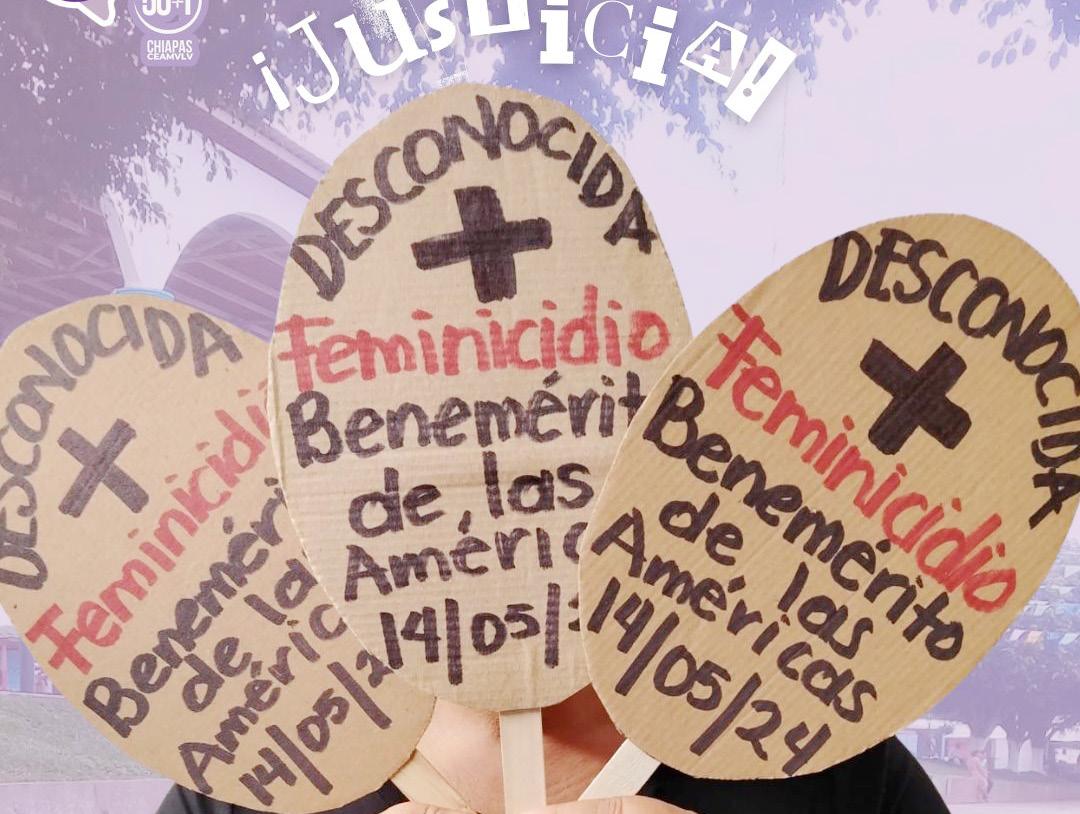 50+1
CHIAPAS
CEAMVLV
¡JUSTICIA!
DESCONOCIDA
Feminicidi
Beneméri
de la
Améric
14/05/2
DESCONOCIDA
Feminicidio
Benemérit
de las
Améric
14/05/
DESCONOCIDA
Feminicidio
Benemérito
de las
Américas
14/05/24